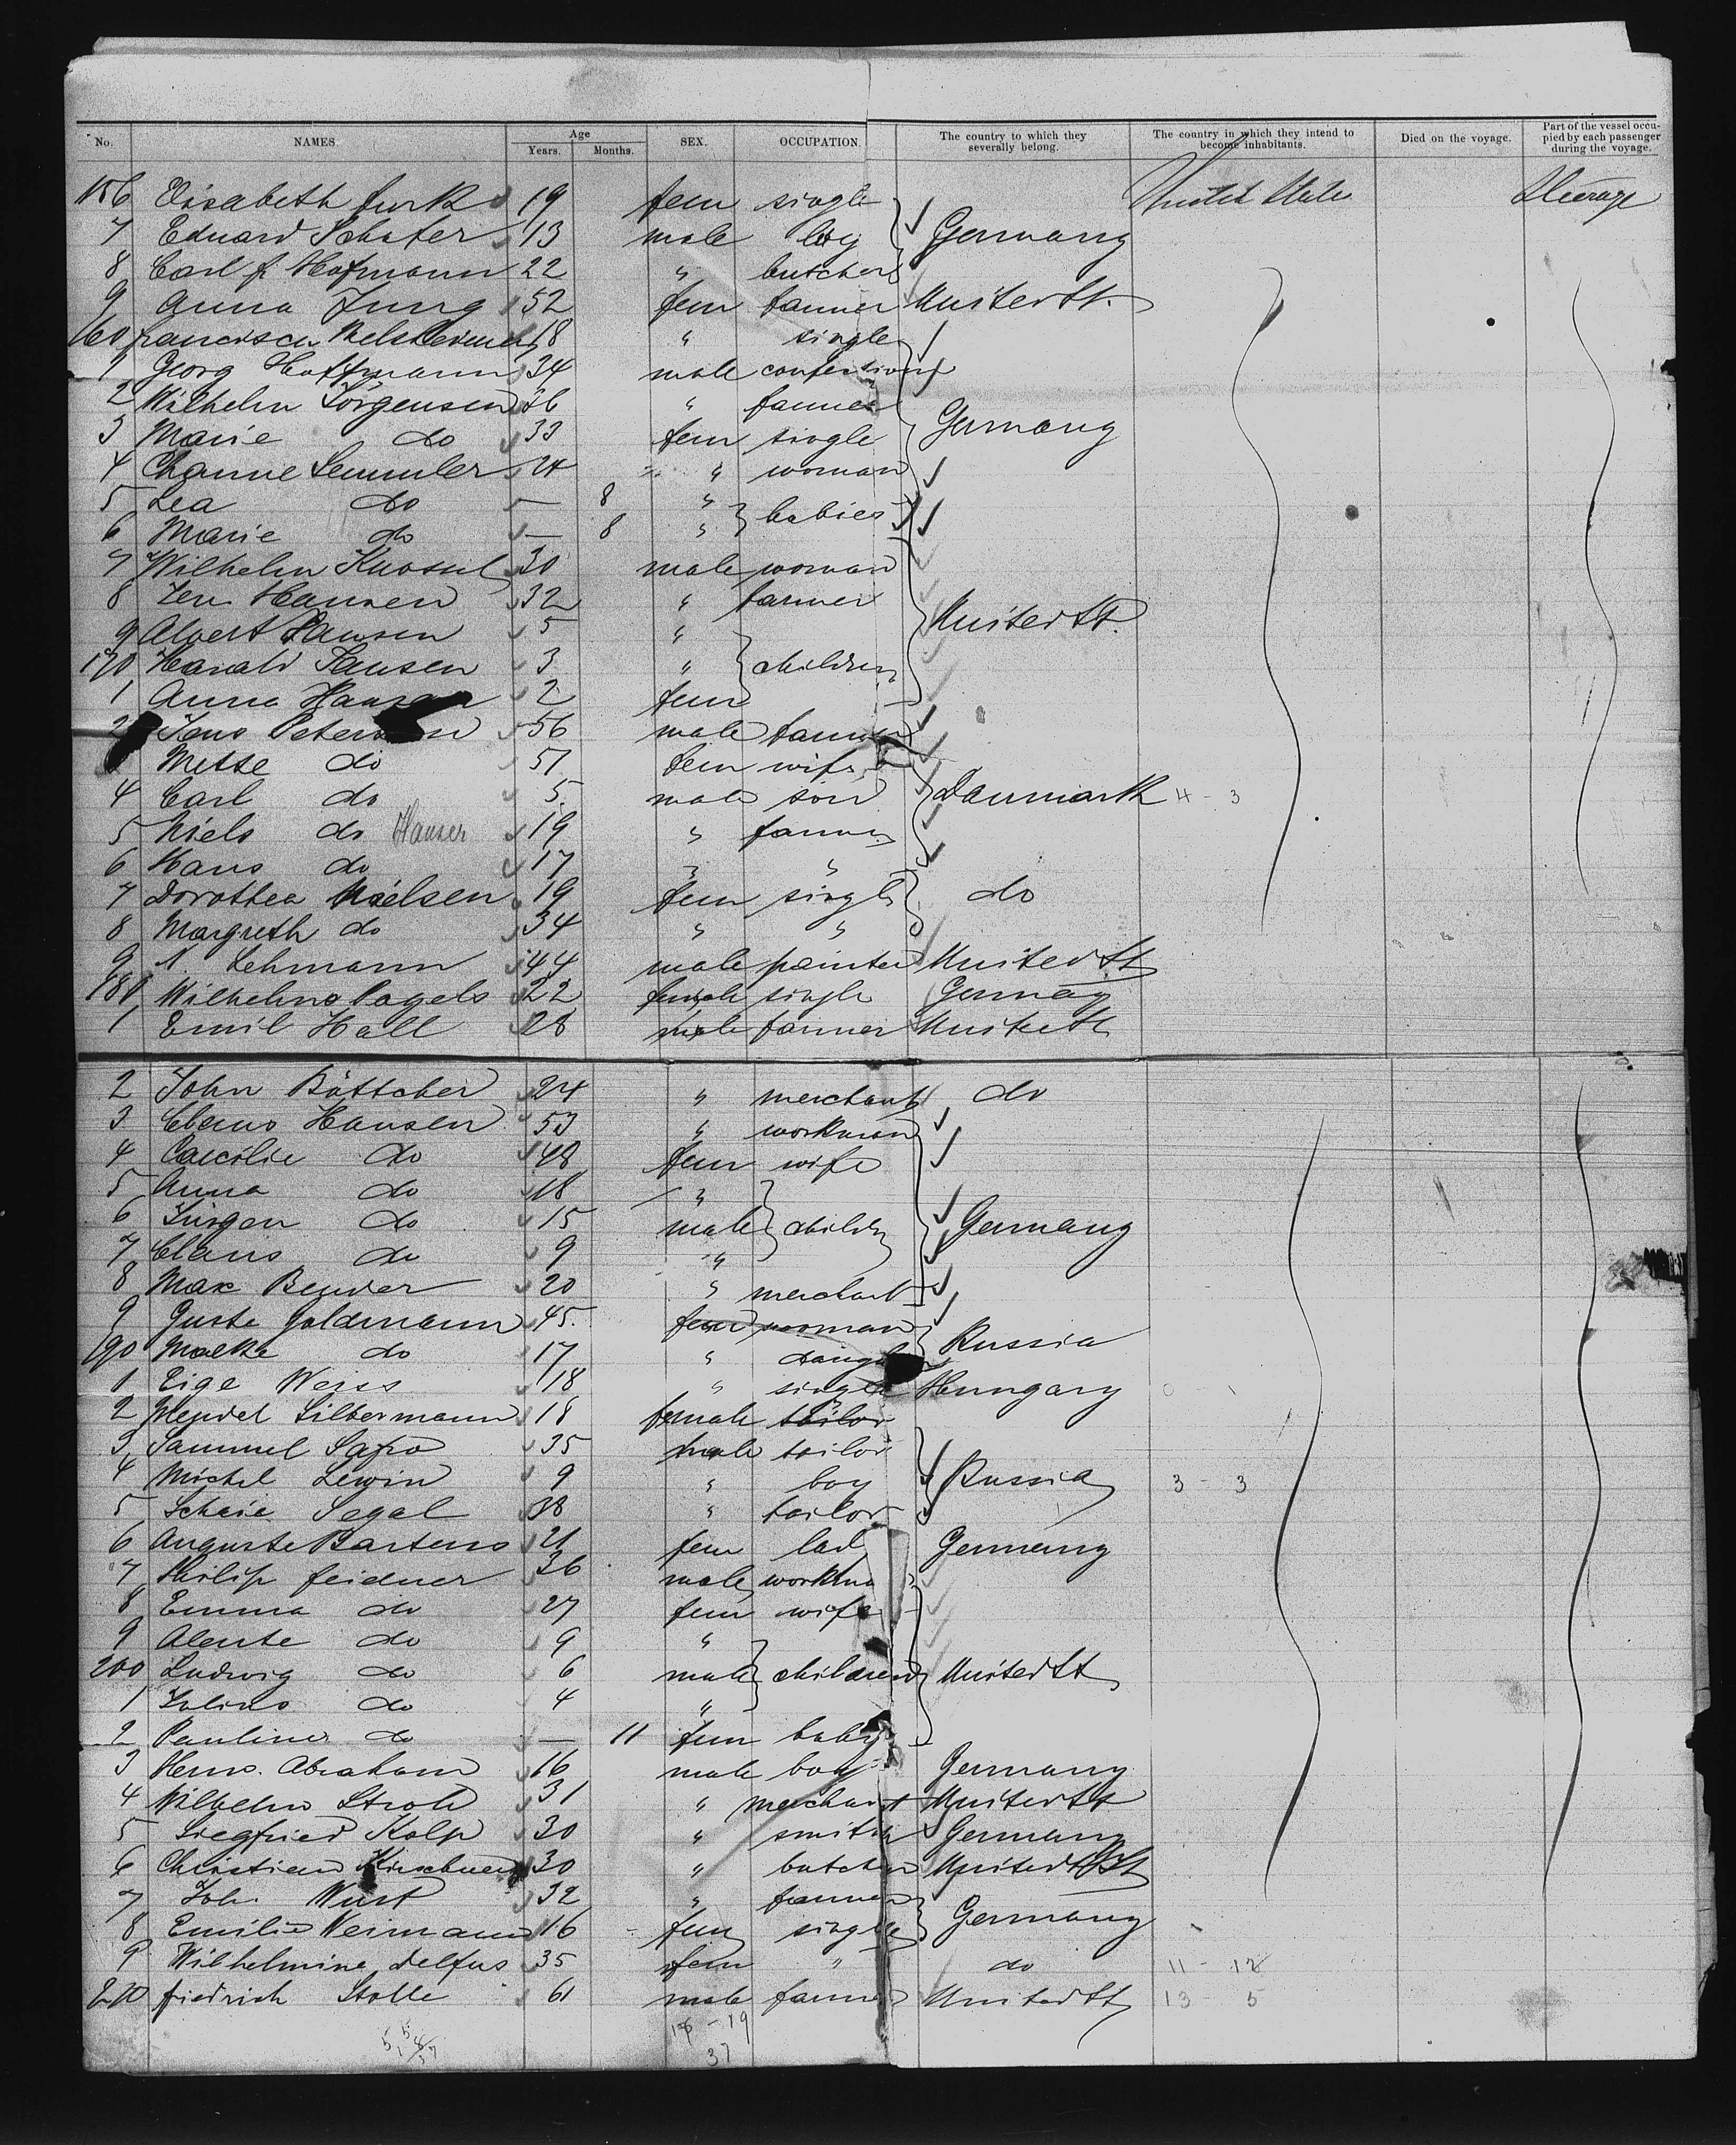 No. NAMES Age Years. Months. SEX. OCCUPATION. The country to which they severally belong. The country in which they intend to become inhabitants. Died on the voyage. Part of the vessel occupied by each passenger during the voyage.
156 Elisabeth furk 19 fem single United States Steerage
7 Eduard Schafer 13 male boy Germany
8 Carl fr Hofmann 22 " butcher
9 Anna Jung 52 fem farmer United St.
160 francisca 18 " single
1 Georg Hoffmann 34 male
2 Wilhelm Jörgensen 36 " farmer Germany
3 Marie do 33 fem single
4 Channe Semmler 24 " woman
5 Lea do — 8 " babies
6 Marie do — 8 "
7 Wilhelm 30 male woman
8 Jen Hansen 32 " farmer United St.
9 Albert Hansen 5 "
170 Harald Hansen 3 " children
1 Anna Hansen 2 fem
2 Jens Petersen 56 male farmer
Mette do 51 fem wife
4 Carl do 5 male son Danmark 4 - 3
5 Niels do Hanser 19 " farmer
6 Hans do 17 " "
7 Dorothea Nielsen 19 fem single do
8 Margreth do 34 " "
9 A. Lehmann 44 male painter United St
180 Wilhelmo Pagels 22 female single Germany
1 Emil Hall 28 male farmer United St
2 John Böttcher 24 " merchant do
3 Claus Hansen 53 " workman
4 Caecilie do 48 fem wife
5 Anna do 18 "
6 Jürgen do 15 male childr Germany
7 Claus do 9 "
8 Max Bender 20 " merchant
9 Guste Goldmann 45 fem woman Russia
190 Malke do 17 "
1 Zige Weiss 18 " single Hungary
2 Mendel Silbermann 18 female tailor
3 Sammel Sapro 35 male tailor
4 Michel Lewin 9 " boy Russia 3 - 3
5 Scheie Segal 38 " tailor
6 Auguste Bartens 21 fem lad Germany
7 Philip feidner 36 male workma
8 Emma do 27 fem wife
9 do 9 "
200 Ludwig do 6 male children United St
1 Julius do 4 "
2 Pauline do — 11 fem baby
3 Herm. Abraham 16 male boy Germany
4 Wilhelm Stroh 31 " merchant United St
5 Siegfried Kolp 30 " smith Germany
6 Christian Kirschner 30 " butcher United St
7 Joh. Wust 32 " farmer
8 Emilie Weimann 16 fem single Germany
9 Wilhelmine Delfus 35 fem " do 11 - 12
210 friedrich Stolle 61 male farmer United St 13 - 5
18 - 19
37